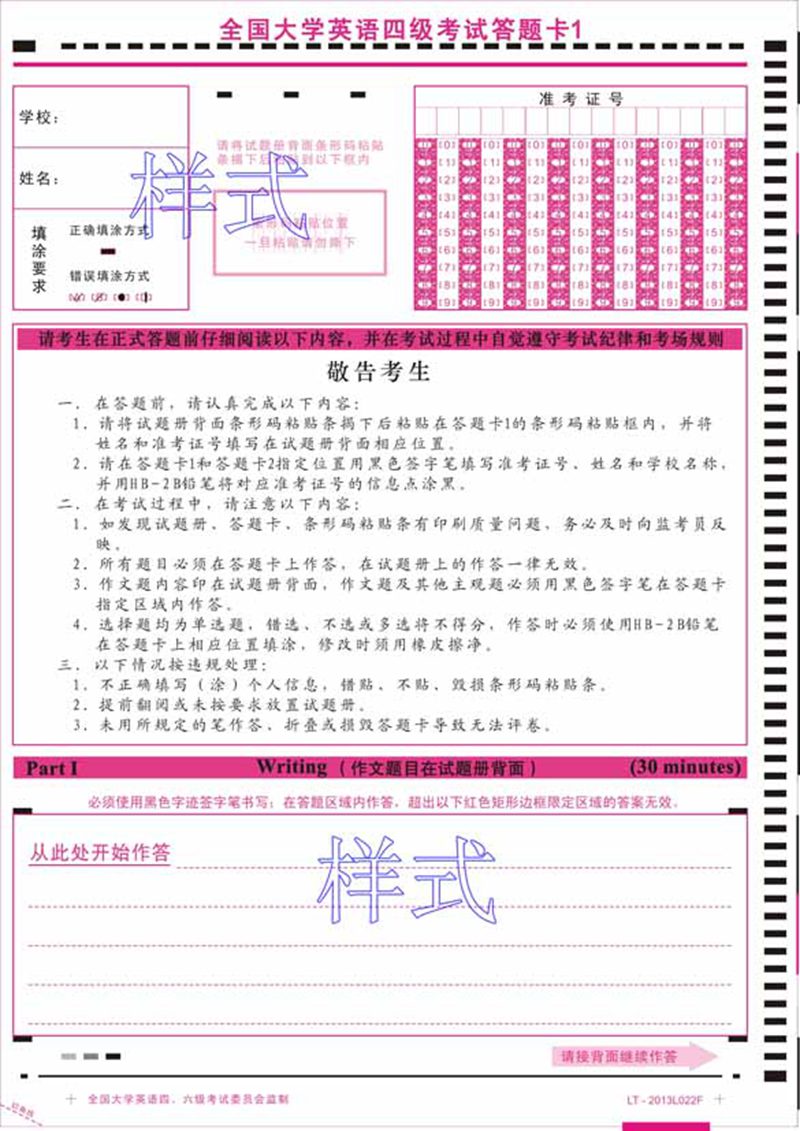 全国大学英语四级考试答题卡1
学校：
姓名：
填涂要求
正确填涂方式
错误填涂方式
请将试题册背面条形码粘贴
条揭下后
到以下框内
样式
粘贴位置
一旦粘贴请勿撕下
准考证号
[0] [0] [0] [0] [0] [0] [0] [0] [0] [0] [0] [0] [0] [0] [0]
[1] [1] [1] [1] [1] [1] [1] [1] [1] [1] [1] [1] [1] [1] [1]
[2] [2] [2] [2] [2] [2] [2] [2] [2] [2] [2] [2] [2] [2] [2]
[3] [3] [3] [3] [3] [3] [3] [3] [3] [3] [3] [3] [3] [3] [3]
[4] [4] [4] [4] [4] [4] [4] [4] [4] [4] [4] [4] [4] [4] [4]
[5] [5] [5] [5] [5] [5] [5] [5] [5] [5] [5] [5] [5] [5] [5]
[6] [6] [6] [6] [6] [6] [6] [6] [6] [6] [6] [6] [6] [6] [6]
[7] [7] [7] [7] [7] [7] [7] [7] [7] [7] [7] [7] [7] [7] [7]
[8] [8] [8] [8] [8] [8] [8] [8] [8] [8] [8] [8] [8] [8] [8]
[9] [9] [9] [9] [9] [9] [9] [9] [9] [9] [9] [9] [9] [9] [9]
请考生在正式答题前仔细阅读以下内容，并在考试过程中自觉遵守考试纪律和考场规则
敬告考生
一．在答题前，请认真完成以下内容：
1．请将试题册背面条形码粘贴条揭下后粘贴在答题卡1的条形码粘贴框内，并将
姓名和准考证号填写在试题册背面相应位置。
2．请在答题卡1和答题卡2指定位置用黑色签字笔填写准考证号、姓名和学校名称，
并用HB-2B铅笔将对应准考证号的信息点涂黑。
二．在考试过程中，请注意以下内容：
1．如发现试题册、答题卡、条形码粘贴条有印刷质量问题，务必及时向监考员反
映。
2．所有题目必须在答题卡上作答，在试题册上的作答一律无效。
3．作文题内容印在试题册背面，作文题及其他主观题必须用黑色签字笔在答题卡
指定区域内作答。
4．选择题均为单选题，错选、不选或多选将不得分，作答时必须使用HB-2B铅笔
在答题卡上相应位置填涂，修改时须用橡皮擦净。
三．以下情况按违规处理：
1．不正确填写（涂）个人信息，错贴、不贴、毁损条形码粘贴条。
2．提前翻阅或未按要求放置试题册。
3．未用所规定的笔作答、折叠或损毁答题卡导致无法评卷。
Part I Writing （作文题目在试题册背面） (30 minutes)
必须使用黑色字迹签字笔书写；在答题区域内作答，超出以下红色矩形边框限定区域的答案无效。
从此处开始作答
样式
请接背面继续作答
全国大学英语四、六级考试委员会监制
LT - 2013L022F